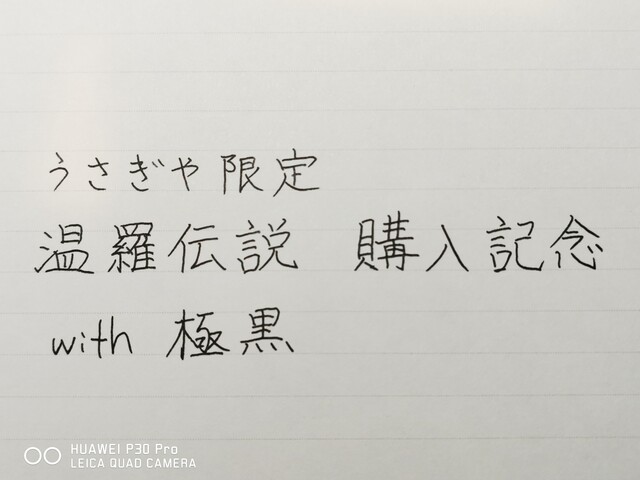 うさぎや限定
温羅伝説 購入記念
with 極黒
HUAWEI P30 Pro
LEICA QUAD CAMERA